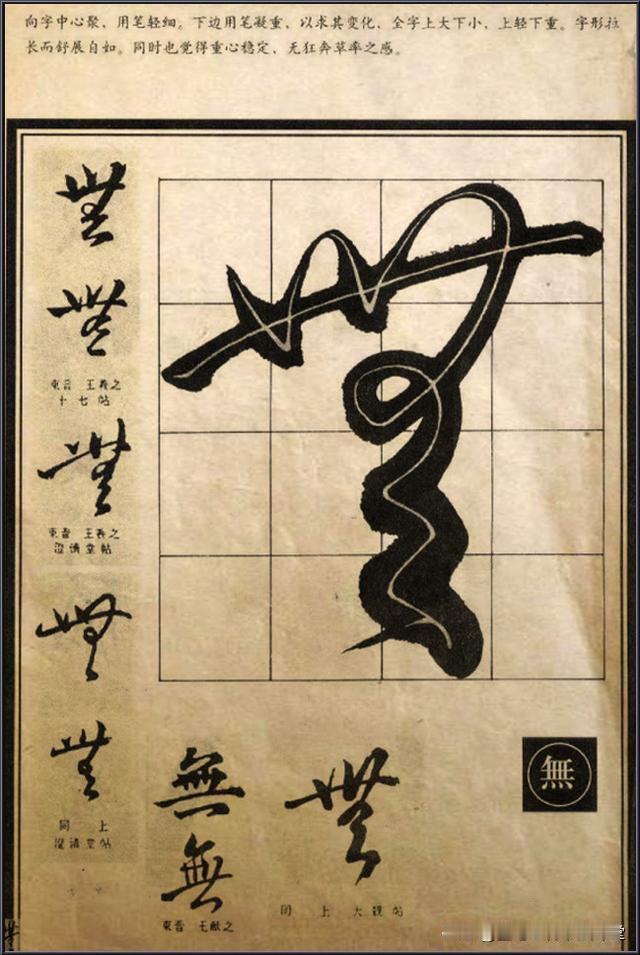 向字中心聚，用笔轻细。下边用笔凝重，以求其变化，全字上大下小，上轻下重。字形拉
长而舒展自如。同时也觉得重心稳定，无狂奔草率之感。
無
無
無
東晋 王羲之
十七帖
無
東晋 王羲之
澄清堂帖
無
無
同上
澄清堂帖
無
無
無
東晋 王献之
無
同上 大観帖
無